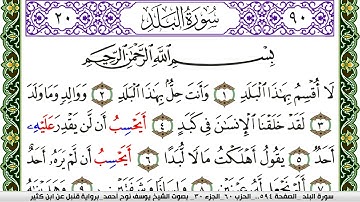 ٢٠ سُورَةُ الْبَلَدِ ٩٠
بِسْمِ اللَّهِ الرَّحْمَٰنِ الرَّحِيمِ
لَا أُقْسِمُ بِهَٰذَا الْبَلَدِ ١ وَأَنتَ حِلٌّ بِهَٰذَا الْبَلَدِ ٢ وَوَالِدٍ وَمَا وَلَدَ
٣ لَقَدْ خَلَقْنَا الْإِنسَٰنَ فِي كَبَدٍ ٤ أَيَحْسِبُ أَن لَّن يَقْدِرَ عَلَيْهِۦ
أَحَدٌ ٥ يَقُولُ أَهْلَكْتُ مَالًا لُّبَدًا ٦ أَيَحْسِبُ أَن لَّمْ يَرَهُۥ أَحَدٌ
سورة البلد _الصفحة ٥٩٤... الحزب ٦٠_الجزء ٣٠_ بصوت الشيخ يوسف نوح أحمد_برواية قنبل عن ابن كثير